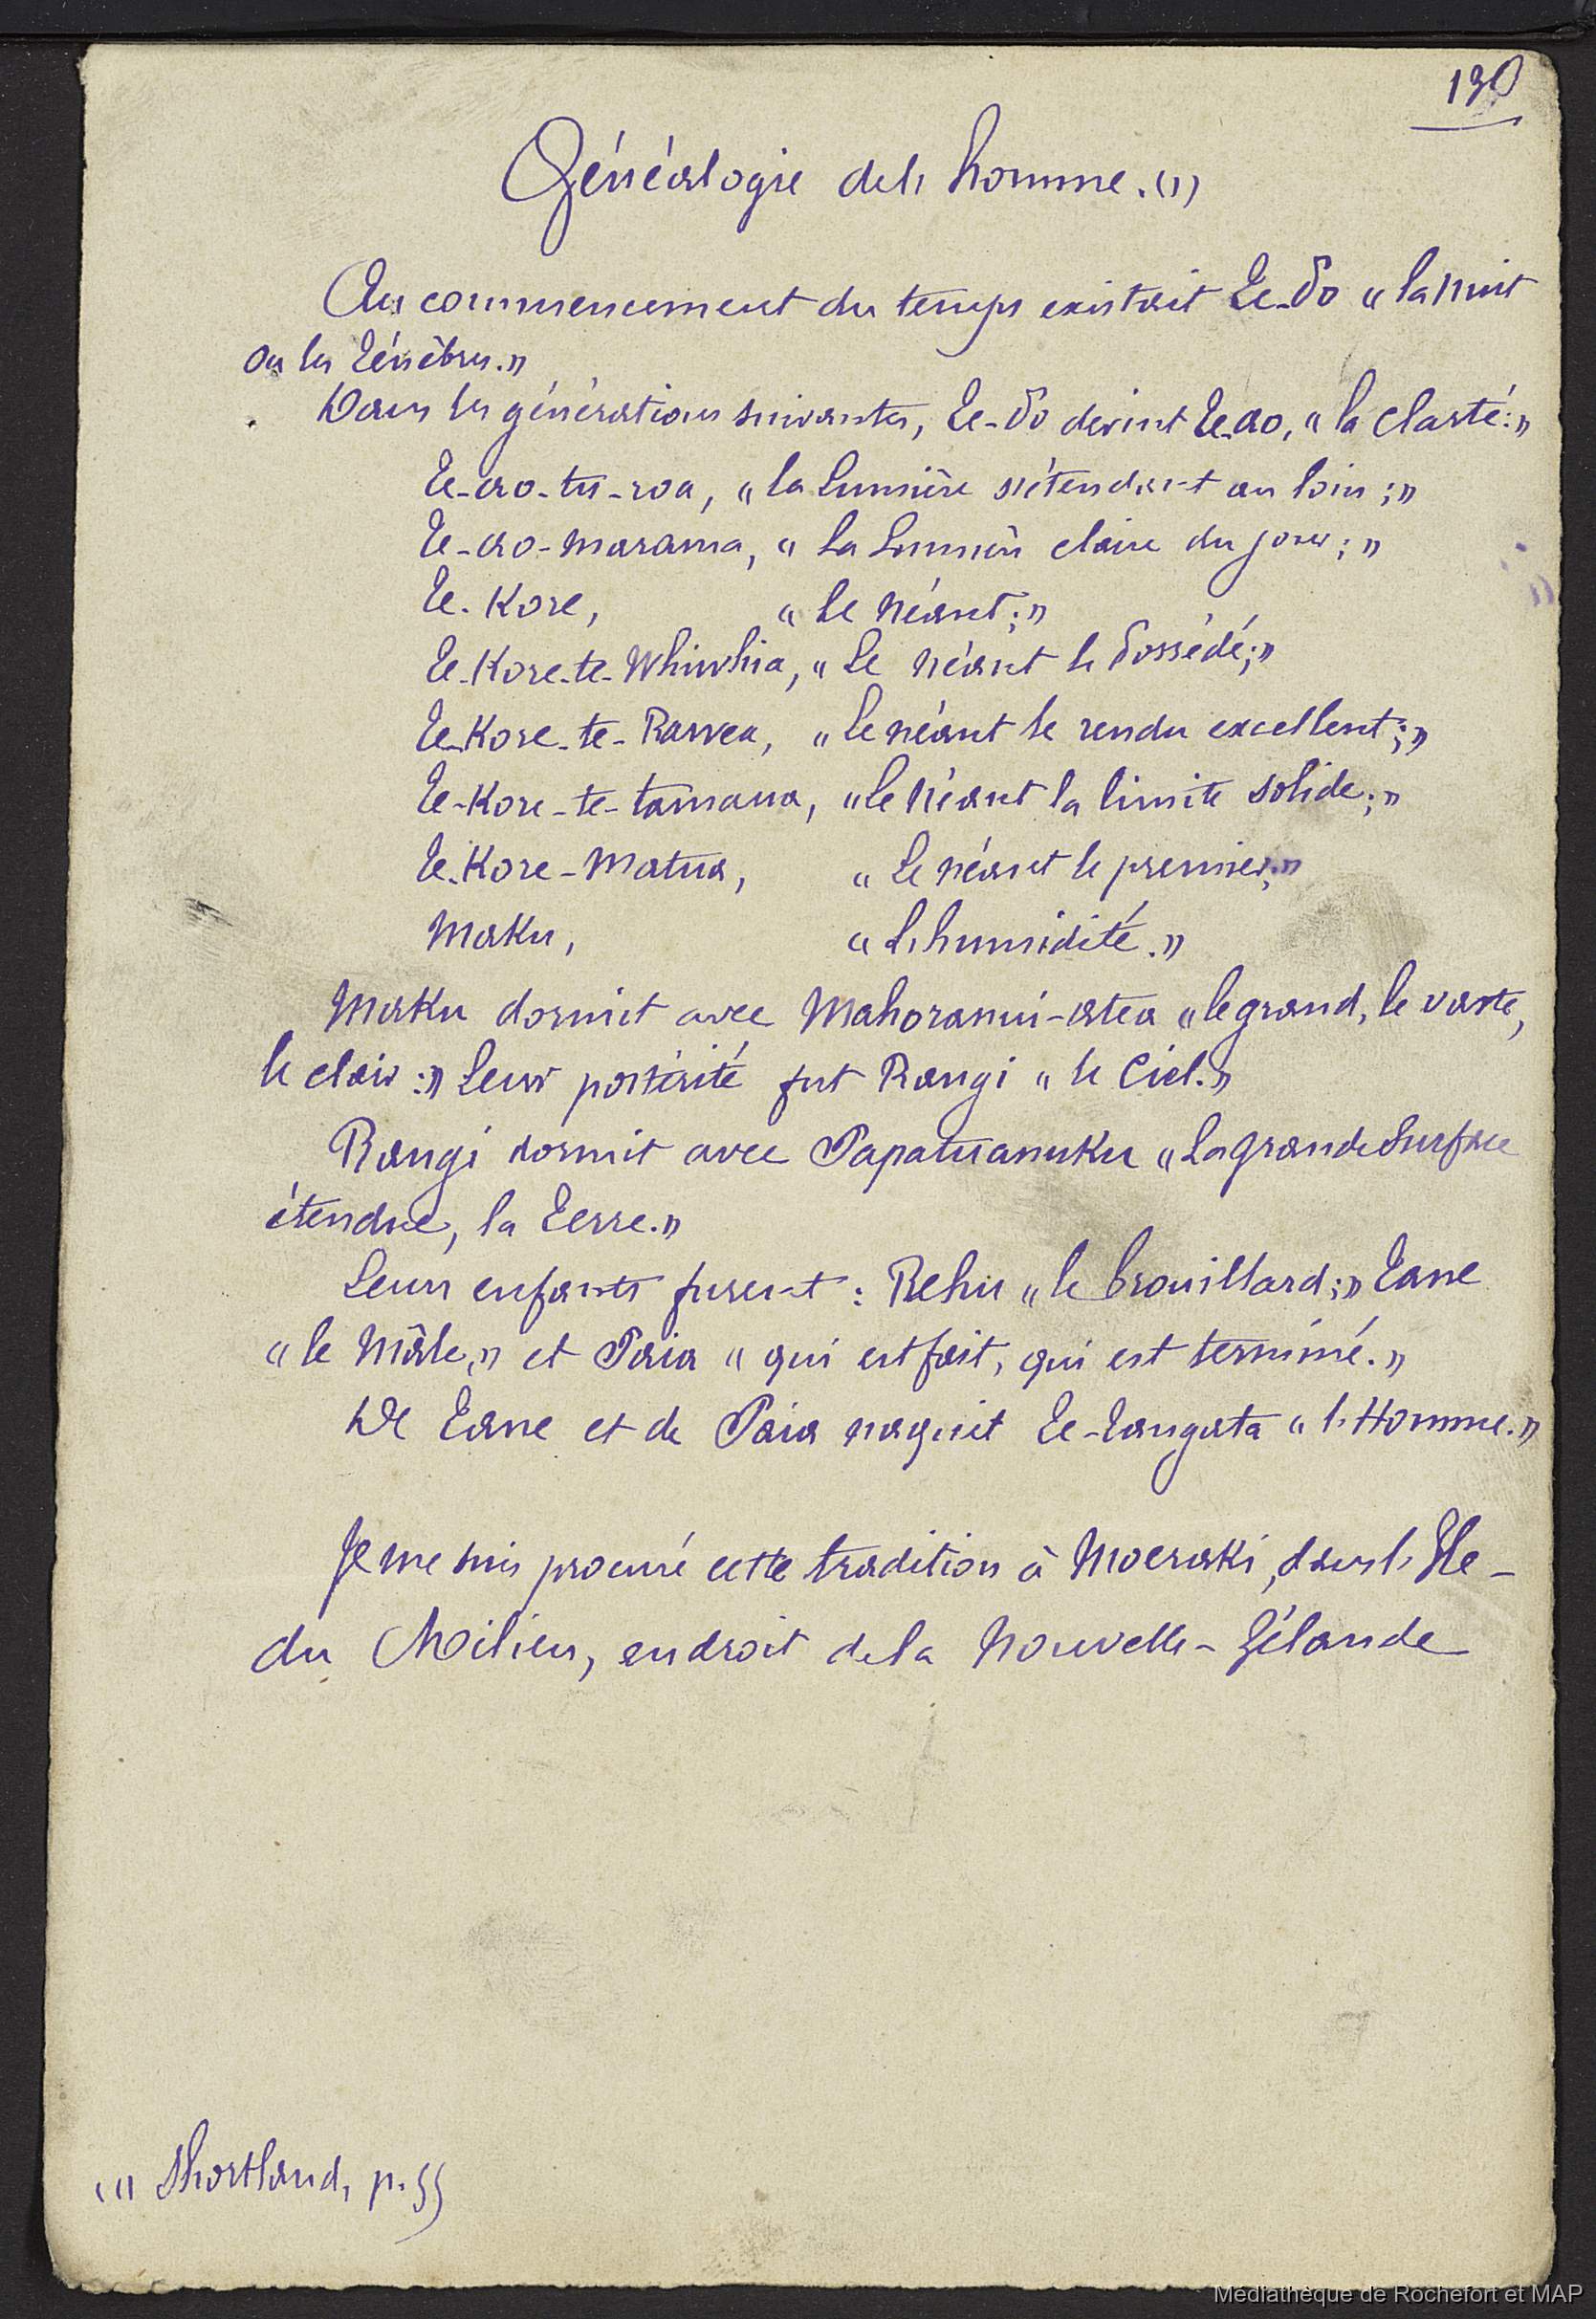 130
Généalogie de l'homme. (1)
Au commencement du temps existait Te-Po « la nuit
ou les Ténèbres. »
Dans les générations suivantes, Te-Po devint Te-ao, « la clarté: »
Te-ao-tu-roa, « la lumière s'étendant au loin ; »
Te-ao-marama, « La Lumière claire du jour ; »
Te-Kore, « Le Néant ; »
Te-Kore-te-Whiwhia, « Le néant le Possédé ; »
Te-Kore-te-Rawea, « Le néant le rendu excellent ; »
Te-Kore-te-tamaua, « Le Néant la limite solide ; »
Te-Kore-Matua, « Le néant le premier, »
Maku, « L'humidité. »
Maku dormit avec Mahoranui-atea « le grand, le vaste,
le clair : » Leur postérité fut Rangi « le Ciel. »
Rangi dormit avec Papatuanuku « La grande Surface
étendue, la Terre. »
Leurs enfants furent : Rehu « le brouillard ; » Tane
« le Mâle, » et Paia « qui est fait, qui est terminé. »
De Tane et de Paia naquit Te-Tangata « l'Homme. »
Je me suis procuré cette tradition à Moeraki, dans l'Ile-
du Milieu, endroit de la Nouvelle-Zélande
(1) Shortland, p. 55
Médiathèque de Rochefort et MAP